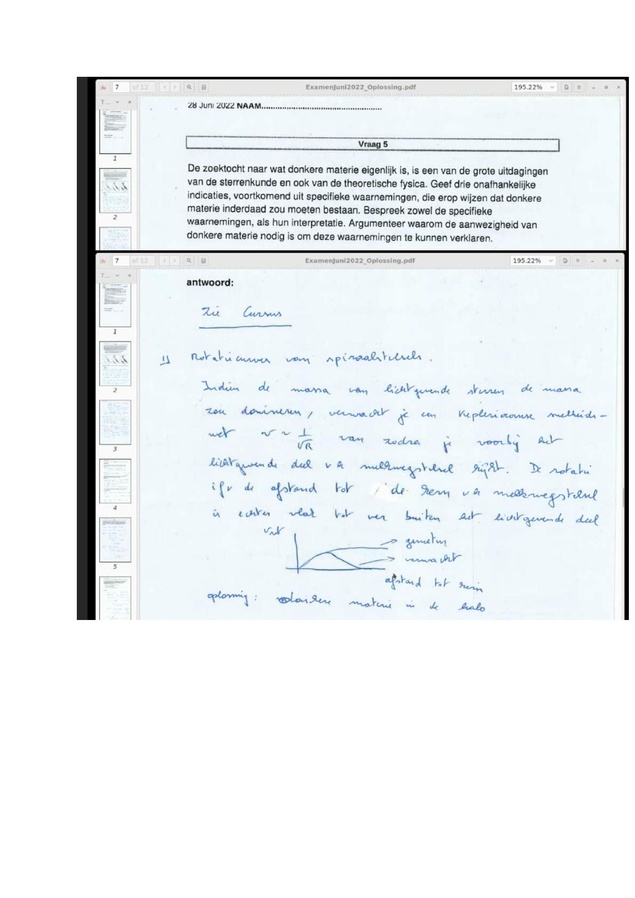 7 of 12
ExamenJuni2022_Oplossing.pdf
195.22%
28 Juni 2022 NAAM
Vraag 5
De zoektocht naar wat donkere materie eigenlijk is, is een van de grote uitdagingen
van de sterrenkunde en ook van de theoretische fysica. Geef drie onafhankelijke
indicaties, voortkomend uit specifieke waarnemingen, die erop wijzen dat donkere
materie inderdaad zou moeten bestaan. Bespreek zowel de specifieke
waarnemingen, als hun interpretatie. Argumenteer waarom de aanwezigheid van
donkere materie nodig is om deze waarnemingen te kunnen verklaren.
1
2
7 of 12
ExamenJuni2022_Oplossing.pdf
195.22%
antwoord:
Zie Cursus
1) Rotatiecurven van spiraalstelsels.
Indien de massa van lichtgevende sterren de massa
zou domineren, verwacht je een Kepleriaanse snelheids-
wet v ~ 1/√R van zodra je voorbij het
lichtgevende deel v h melkwegstelsel kijkt. De rotatie
ifv de afstand tot de kern v h melkwegstelsel
is echter vlak tot ver buiten het lichtgevende deel
gemeten
verwacht
afstand tot kern
oplossing: donkere materie in de halo
1
2
3
4
5